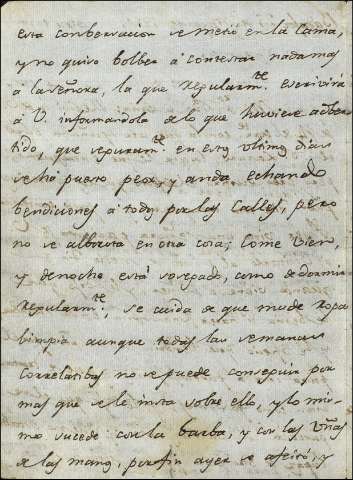 esta conbersacion se metió en la cama,
y no quiso bolber á contestar nada mas
á la señora, la que regularm.te escrivirá
á V. informandola de lo que huviere adber
tido, que seguram.te en estos ultimos dias
se há puesto peor, y anda echando
bendiciones á todos por las Calles, pero
no se alborota en otra cosa; Come bien,
y de noche está sosegado, como de dormir
regularm.te, se cuida de que mude Ropa
limpia aunque todas las semanas
correlatibas no se puede conseguir por
mas que se le insta sobre ello, y lo mis-
mo sucede con la barba, y con las Uñas
de las manos, por fin ayer se afeitó, y